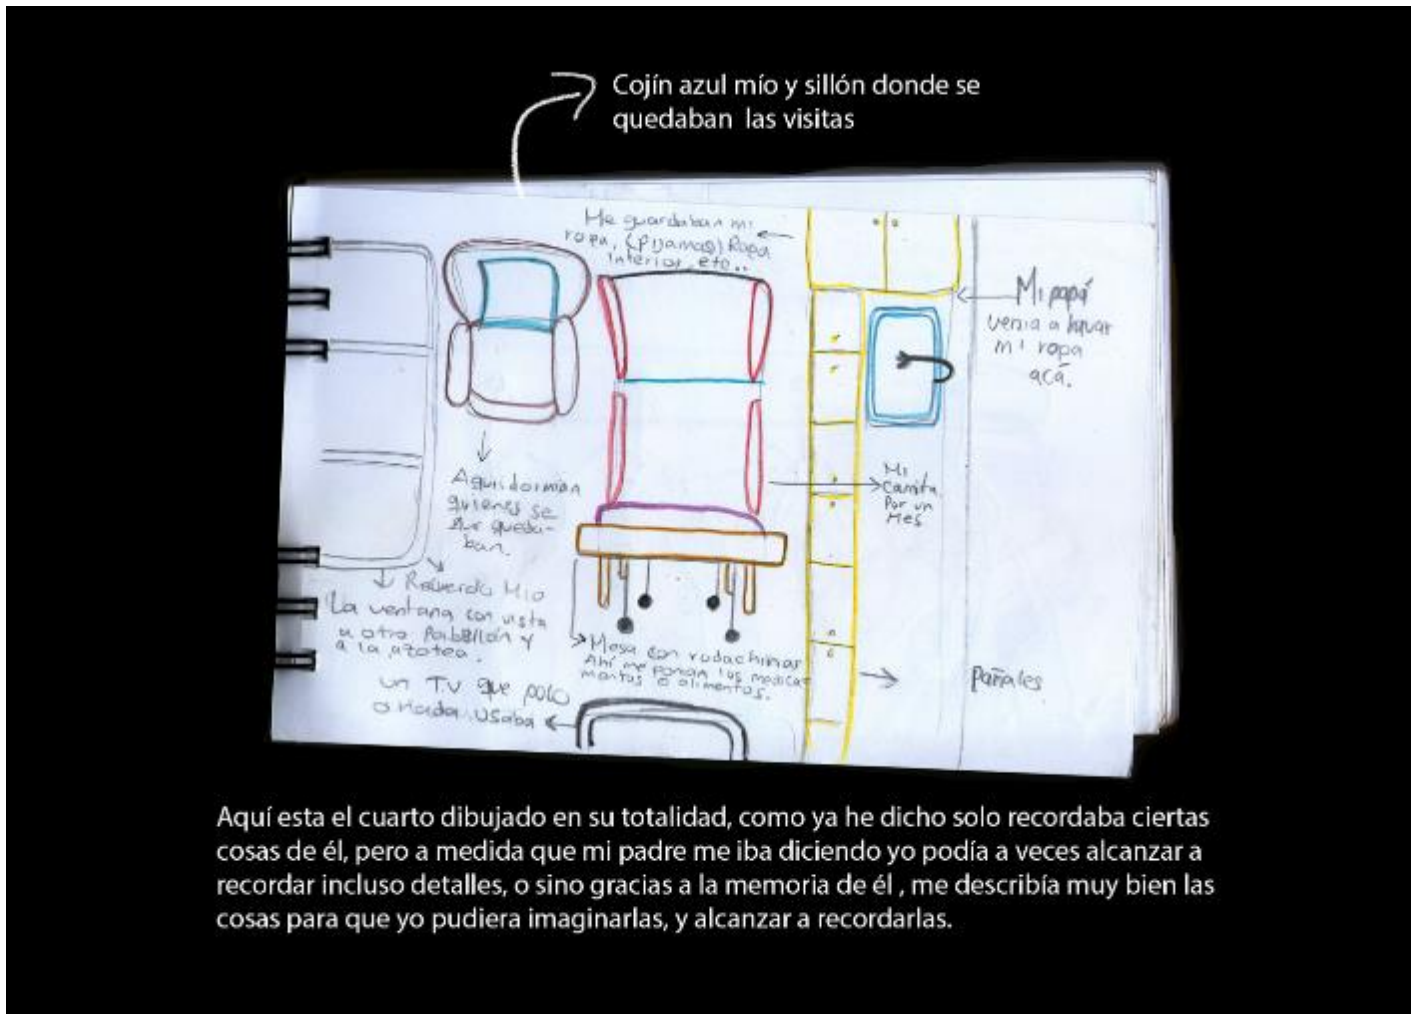 Cojín azul mío y sillón donde se
quedaban las visitas
Me guardaban mi
ropa, (Pijamas) Ropa
interior, etc..
Mi papá
venia a lavar
mi ropa
acá.
Aquí dormian
quienes se
queda-
ban.
Mi
camita
Por un
Mes
Recuerdo Mio
La ventana con vista
a otro Pabellón y
a la azotea.
Mesa con rodachinas
Ahí me ponían los medica-
mentos o alimentos.
pañales
un TV que poco
o nada usaba
Aquí esta el cuarto dibujado en su totalidad, como ya he dicho solo recordaba ciertas
cosas de él, pero a medida que mi padre me iba diciendo yo podía a veces alcanzar a
recordar incluso detalles, o sino gracias a la memoria de él , me describía muy bien las
cosas para que yo pudiera imaginarlas, y alcanzar a recordarlas.